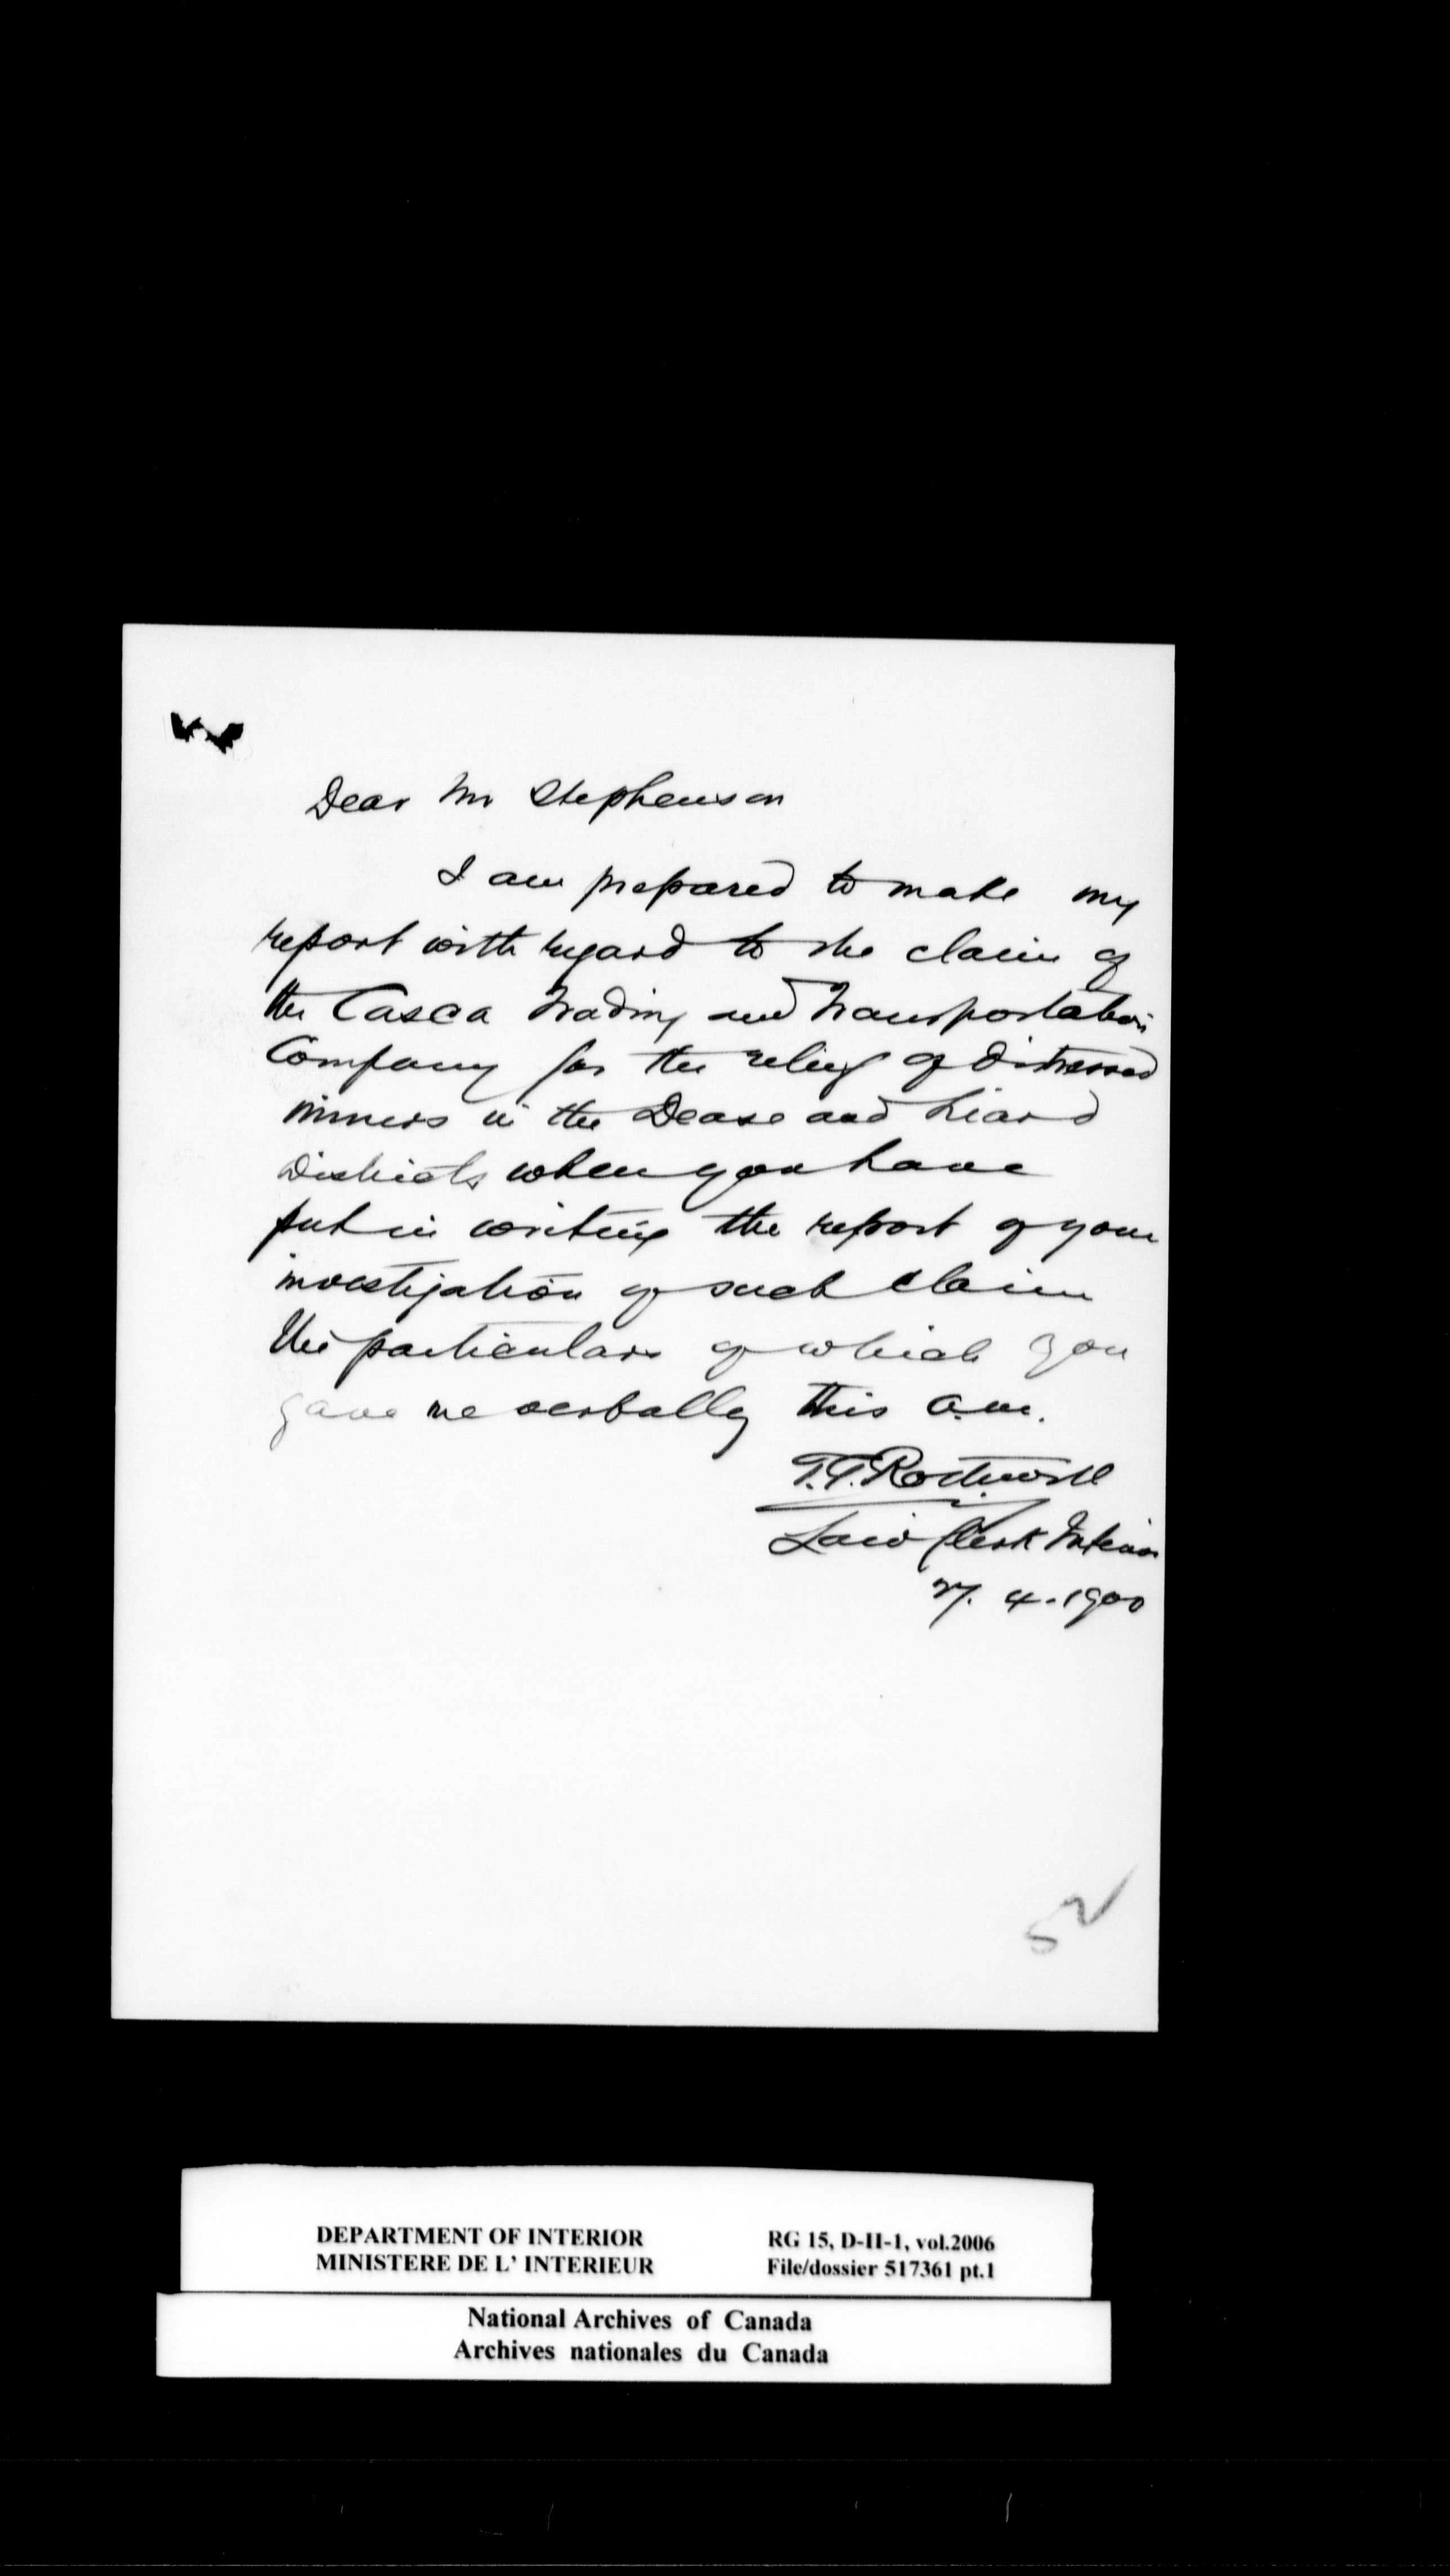 Dear Mr Stephenson
I am prepared to make my
report with regard to the claim of
the Casca Trading and Transportation
Company for the relief of distressed
miners in the Dease and Liard
Districts when you have
put in writing the report of your
investigation of such claim
the particulars of which you
gave me verbally this a.m.
T.G. Rothwell
Law Clerk Interior
27. 4. 1900
52
DEPARTMENT OF INTERIOR RG 15, D-II-1, vol.2006
MINISTERE DE L' INTERIEUR File/dossier 517361 pt.1
National Archives of Canada
Archives nationales du Canada